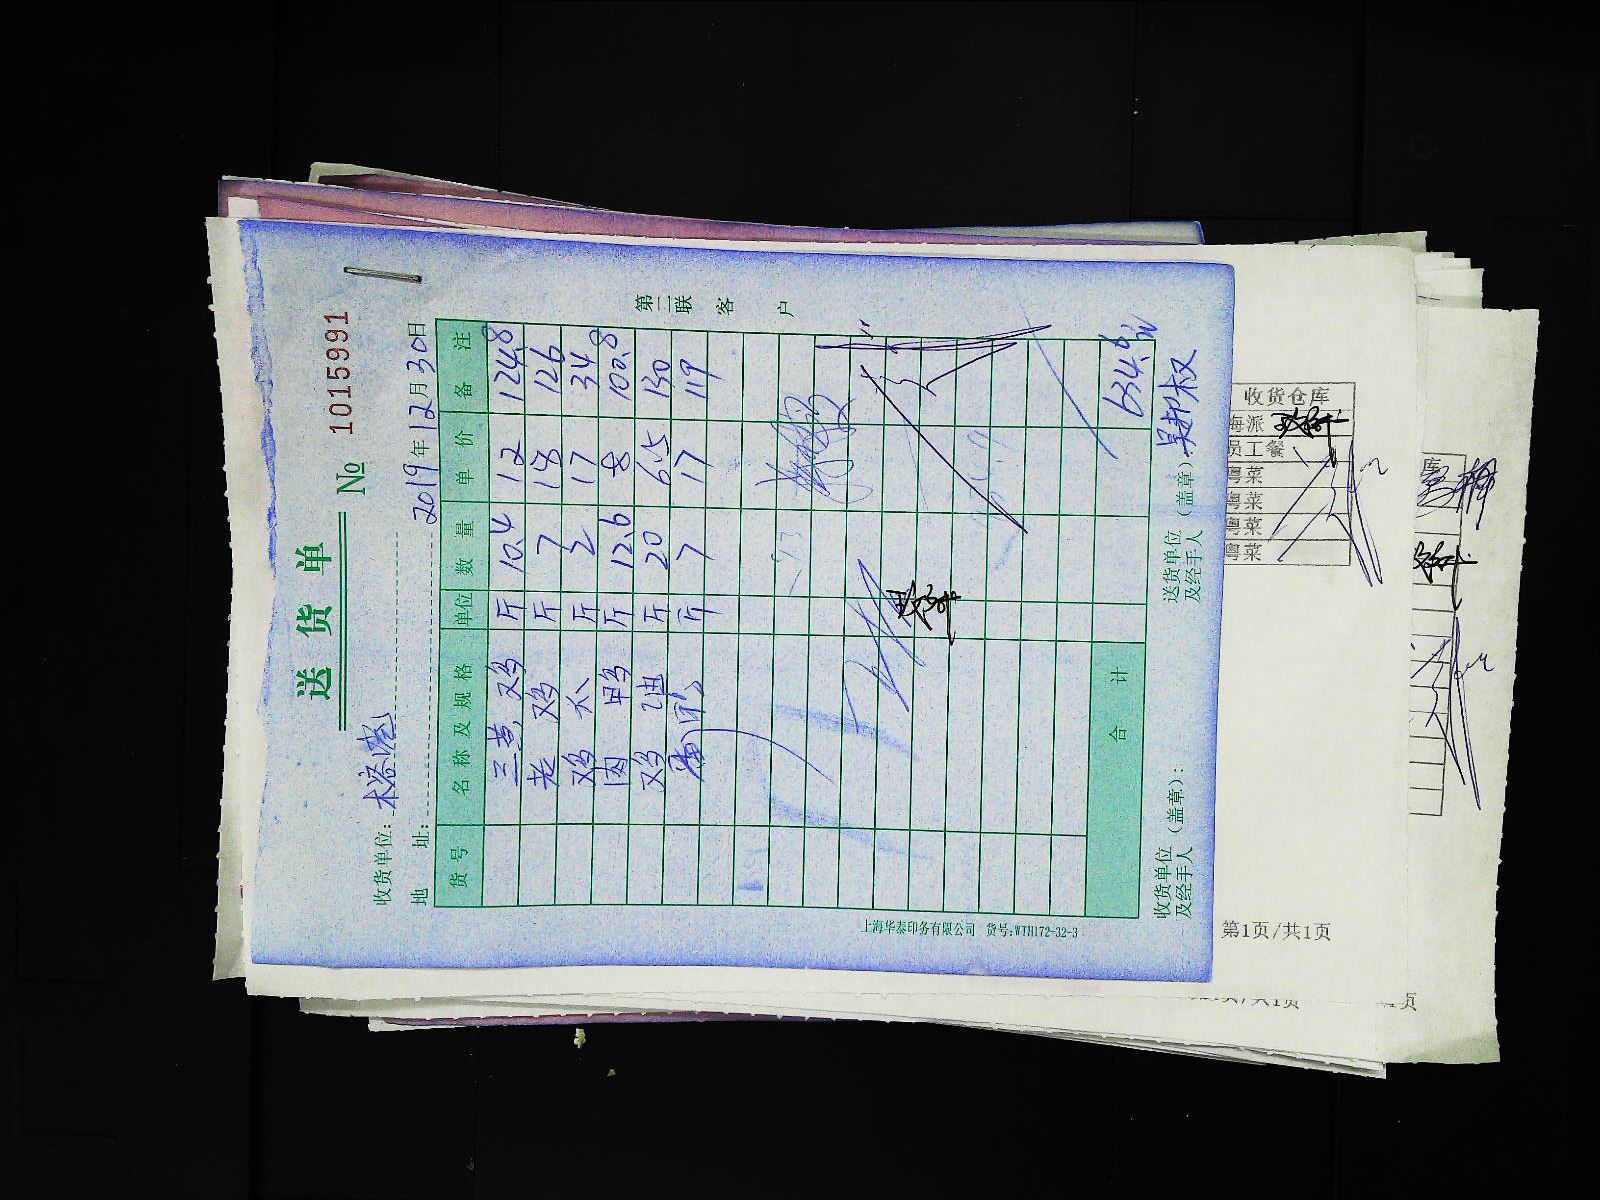 送货单
№ 1015991
收货单位：
2019年12月30日
地址：
货号 名称及规格 单位 数量 单价 备注
三黄鸡 斤 10.4 12 124.8
老鸡 斤 7 18 126
鸡爪 斤 2 17 34
肉鸭 斤 12.6 8 100.8
鸡 斤 20 6.5 130
斤 7 17 119
合计 634.6元
收货单位及经手人（盖章）：
送货单位及经手人（盖章）：
第二联 客户
上海华泰印务有限公司 货号:WTH172-32-3
收货仓库
海派
员工餐
粤菜
粤菜
粤菜
粤菜
第1页/共1页
库
页